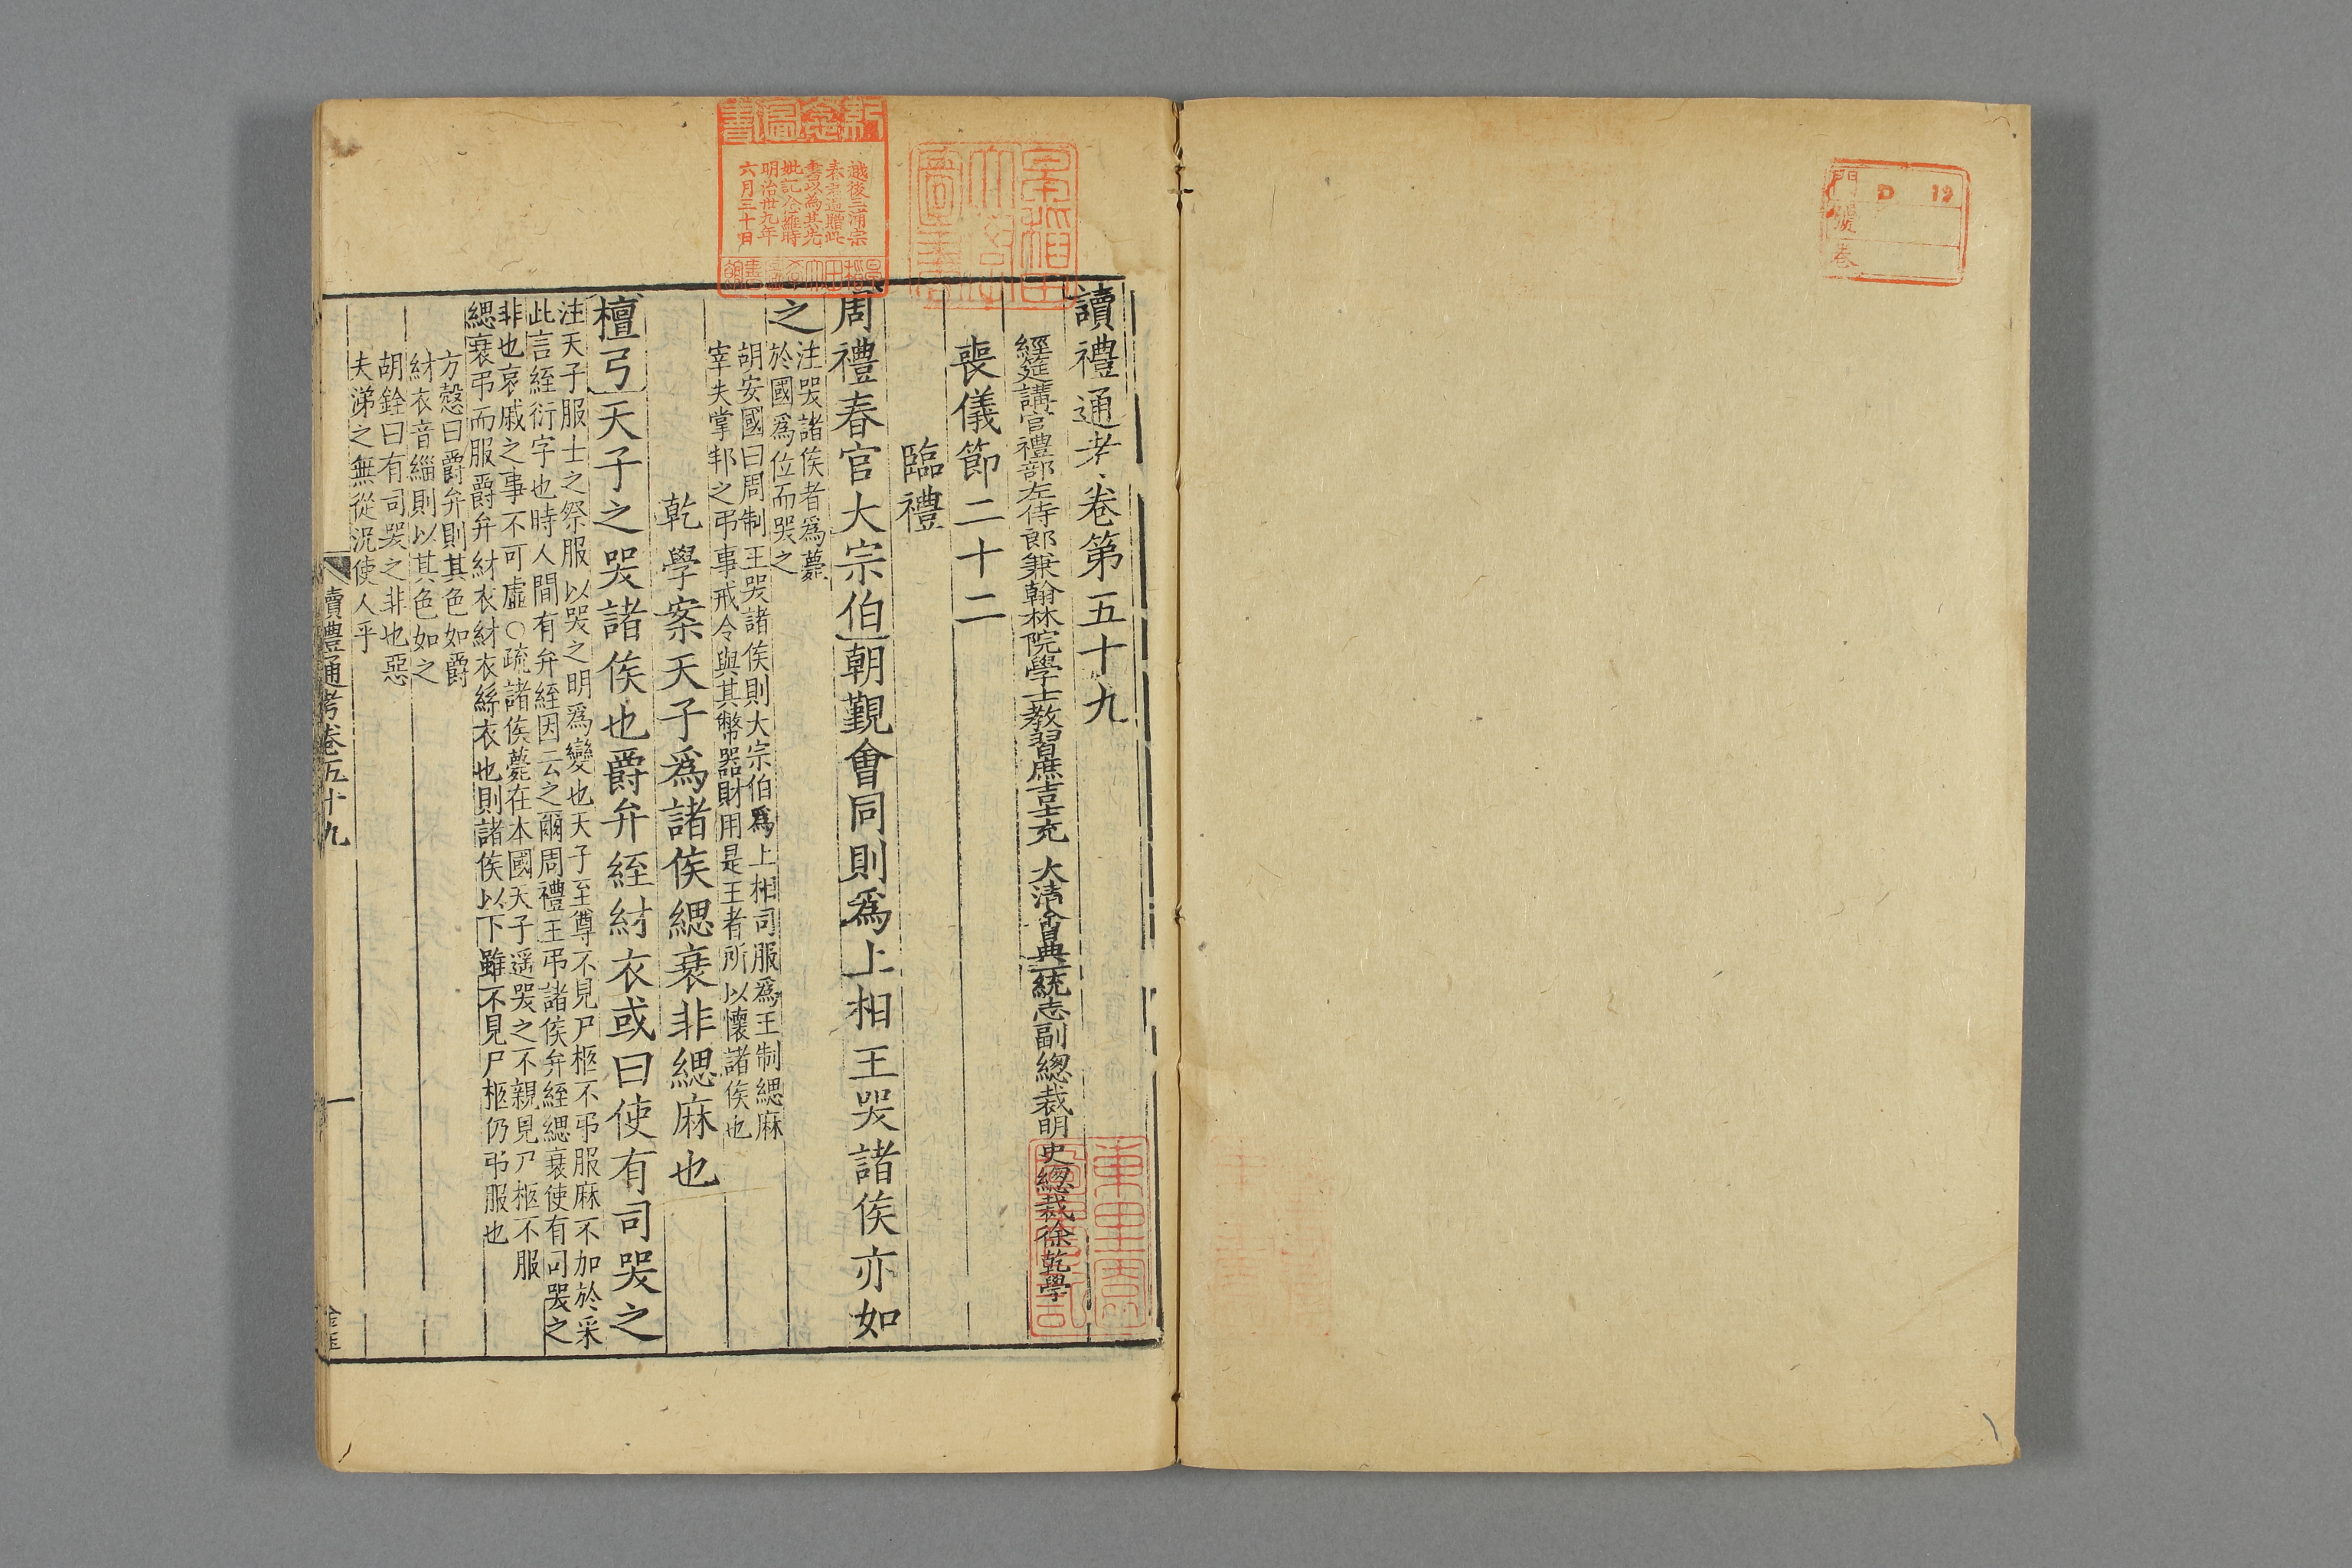 門 D 19
號
卷
讀禮通考卷第五十九
經筵講官禮部左侍郎兼翰林院學士教習庶吉士充 大清會典一統志副總裁明史總裁徐乾學
喪儀節二十二
臨禮
周禮春官大宗伯朝覲會同則爲上相王哭諸侯亦如
之
注哭諸侯者爲薨
於國爲位而哭之
胡安國曰周制王哭諸侯則大宗伯爲上相司服爲王制緦麻
宰夫掌邦之弔事戒令與其幣器財用是王者所以懷諸侯也
乾學案天子爲諸侯緦衰非緦麻也
檀弓天子之哭諸侯也爵弁絰紂衣或曰使有司哭之
注天子服士之祭服以哭之明爲變也天子至尊不見尸柩不弔服麻不加於采
此言絰衍字也時人間有弁絰因云之爾周禮王弔諸侯弁絰緦衰使有司哭之
非也哀戚之事不可虛○疏諸侯薨在本國天子遥哭之不親見尸柩不服
緦衰弔而服爵弁紂衣紂衣絲衣也則諸侯以下雖不見尸柩仍弔服也
方慤曰爵弁則其色如爵
紂衣音緇則以其色如之
胡銓曰有司哭之非也惡
夫涕之無從況使人乎
讀禮通考卷五十九
一
新藏圖書
越後三浦宗
春君追贈此
書以爲其先
妣記念維時
明治卅九年
六月三十日
早稻田大學圖書館
早稻田大學圖書